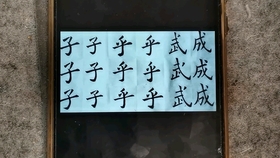 子子乎乎武成
子子乎乎武成
子子乎乎武成